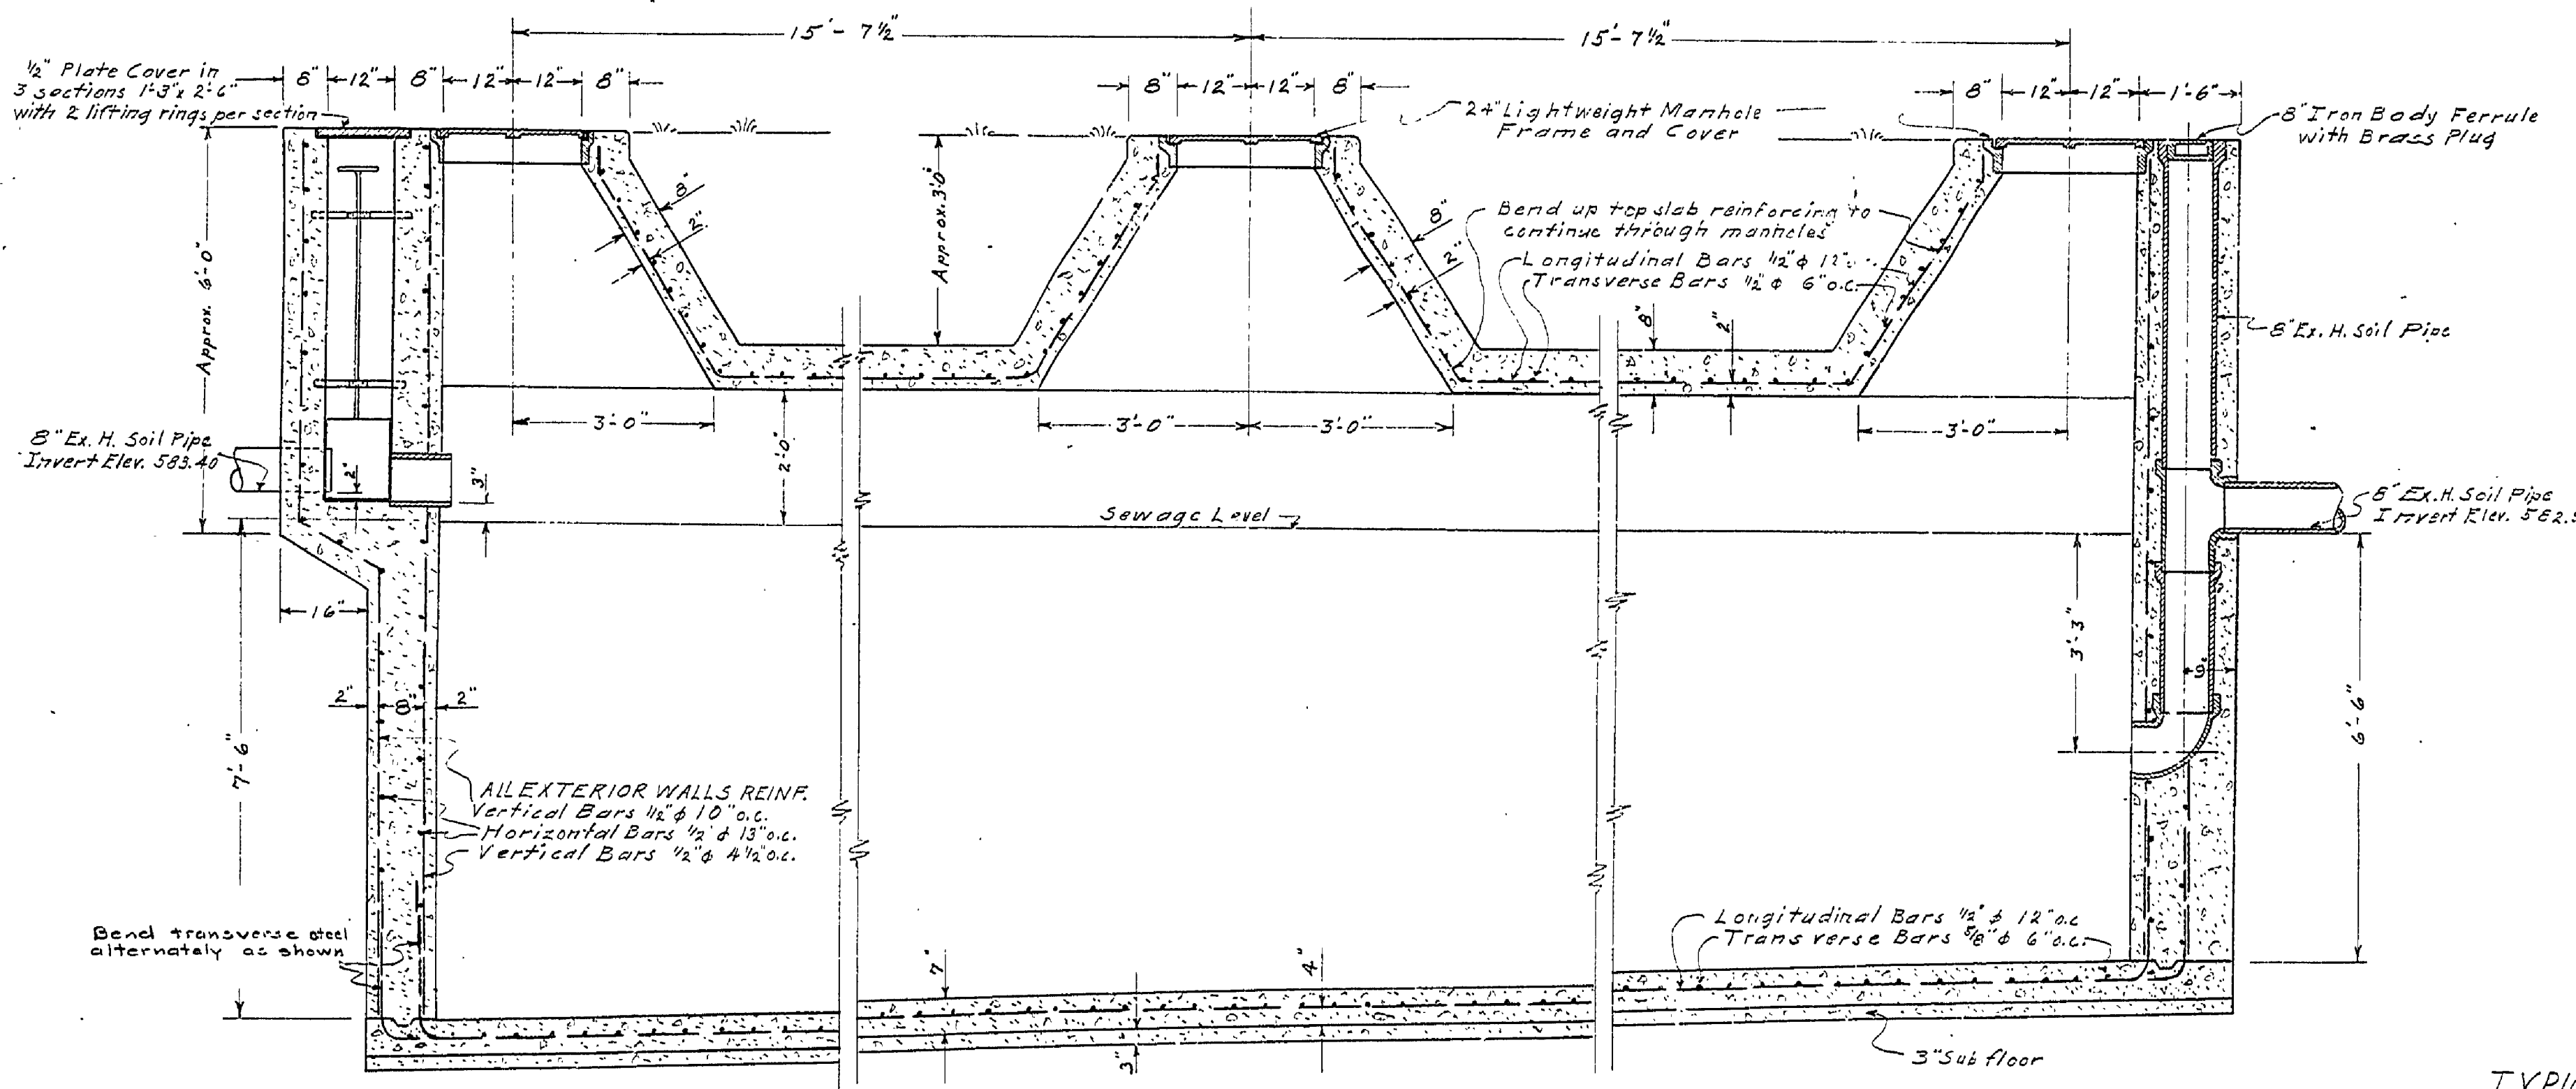 15'-7½"
15'-7½"
½" Plate Cover in
3 sections 1'-3" x 2'-6"
with 2 lifting rings per section
8" 12" 8" 12" 12" 8"
8" 12" 12" 8"
8" 12" 12" 1'-6"
24" Lightweight Manhole
Frame and Cover
8" Iron Body Ferrule
with Brass Plug
Approx. 6'-0"
8"
2"
Approx. 3'-0"
8"
2"
Bend up top slab reinforcing to
continue through manholes
Longitudinal Bars ½" φ 12"
Transverse Bars ½" φ 6" o.c.
8"
2"
8" Ex. H. Soil Pipe
3'-0"
3'-0"
3'-0"
3'-0"
8" Ex. H. Soil Pipe
Invert Elev. 583.40
2"
3"
2'-0"
Sewage Level
8" Ex. H. Soil Pipe
Invert Elev. 582.
16"
3'-3"
9"
6'-6"
2"
8"
2"
7'-6"
ALL EXTERIOR WALLS REINF.
Vertical Bars ½" φ 10" o.c.
Horizontal Bars ½" φ 13" o.c.
Vertical Bars ½" φ 4½" o.c.
Bend transverse steel
alternately as shown
7"
4"
3"
Longitudinal Bars ½" φ 12" o.c
Transverse Bars ⅝" φ 6" o.c.
3" Sub floor